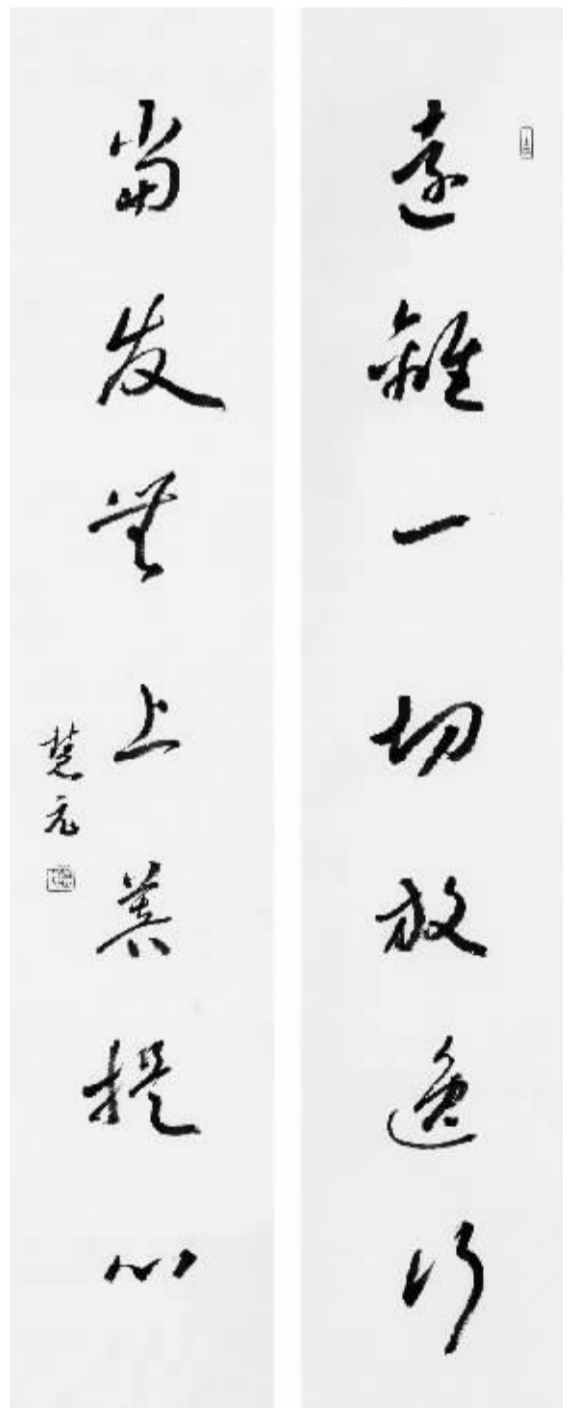 遠離一切放逸行
當发無上菩提心
慧元